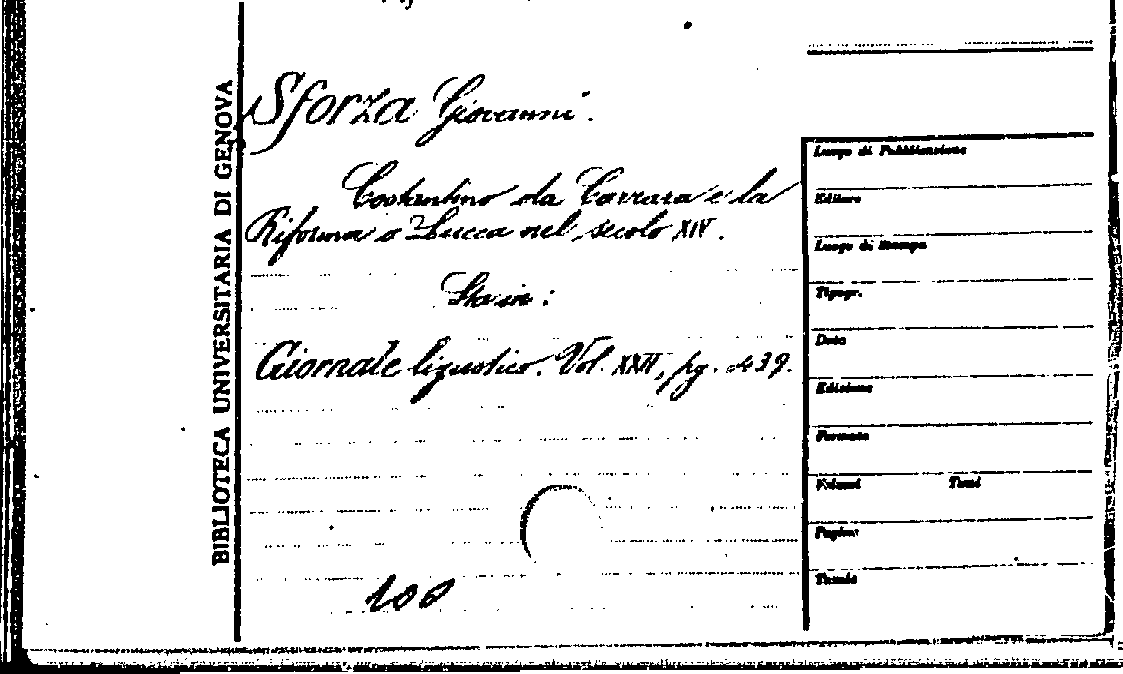 BIBLIOTECA UNIVERSITARIA DI GENOVA
Sforza Giovanni.
Costantino da Carrara e la
Riforma a Lucca nel secolo XIV.
Sta in:
Giornale ligustico. Vol. XXII, pg. 439.
100
Luogo di Pubblicazione
Editore
Luogo di Stampa
Tipogr.
Data
Edizione
Formato
Volumi Tomi
Pagine
Tavole